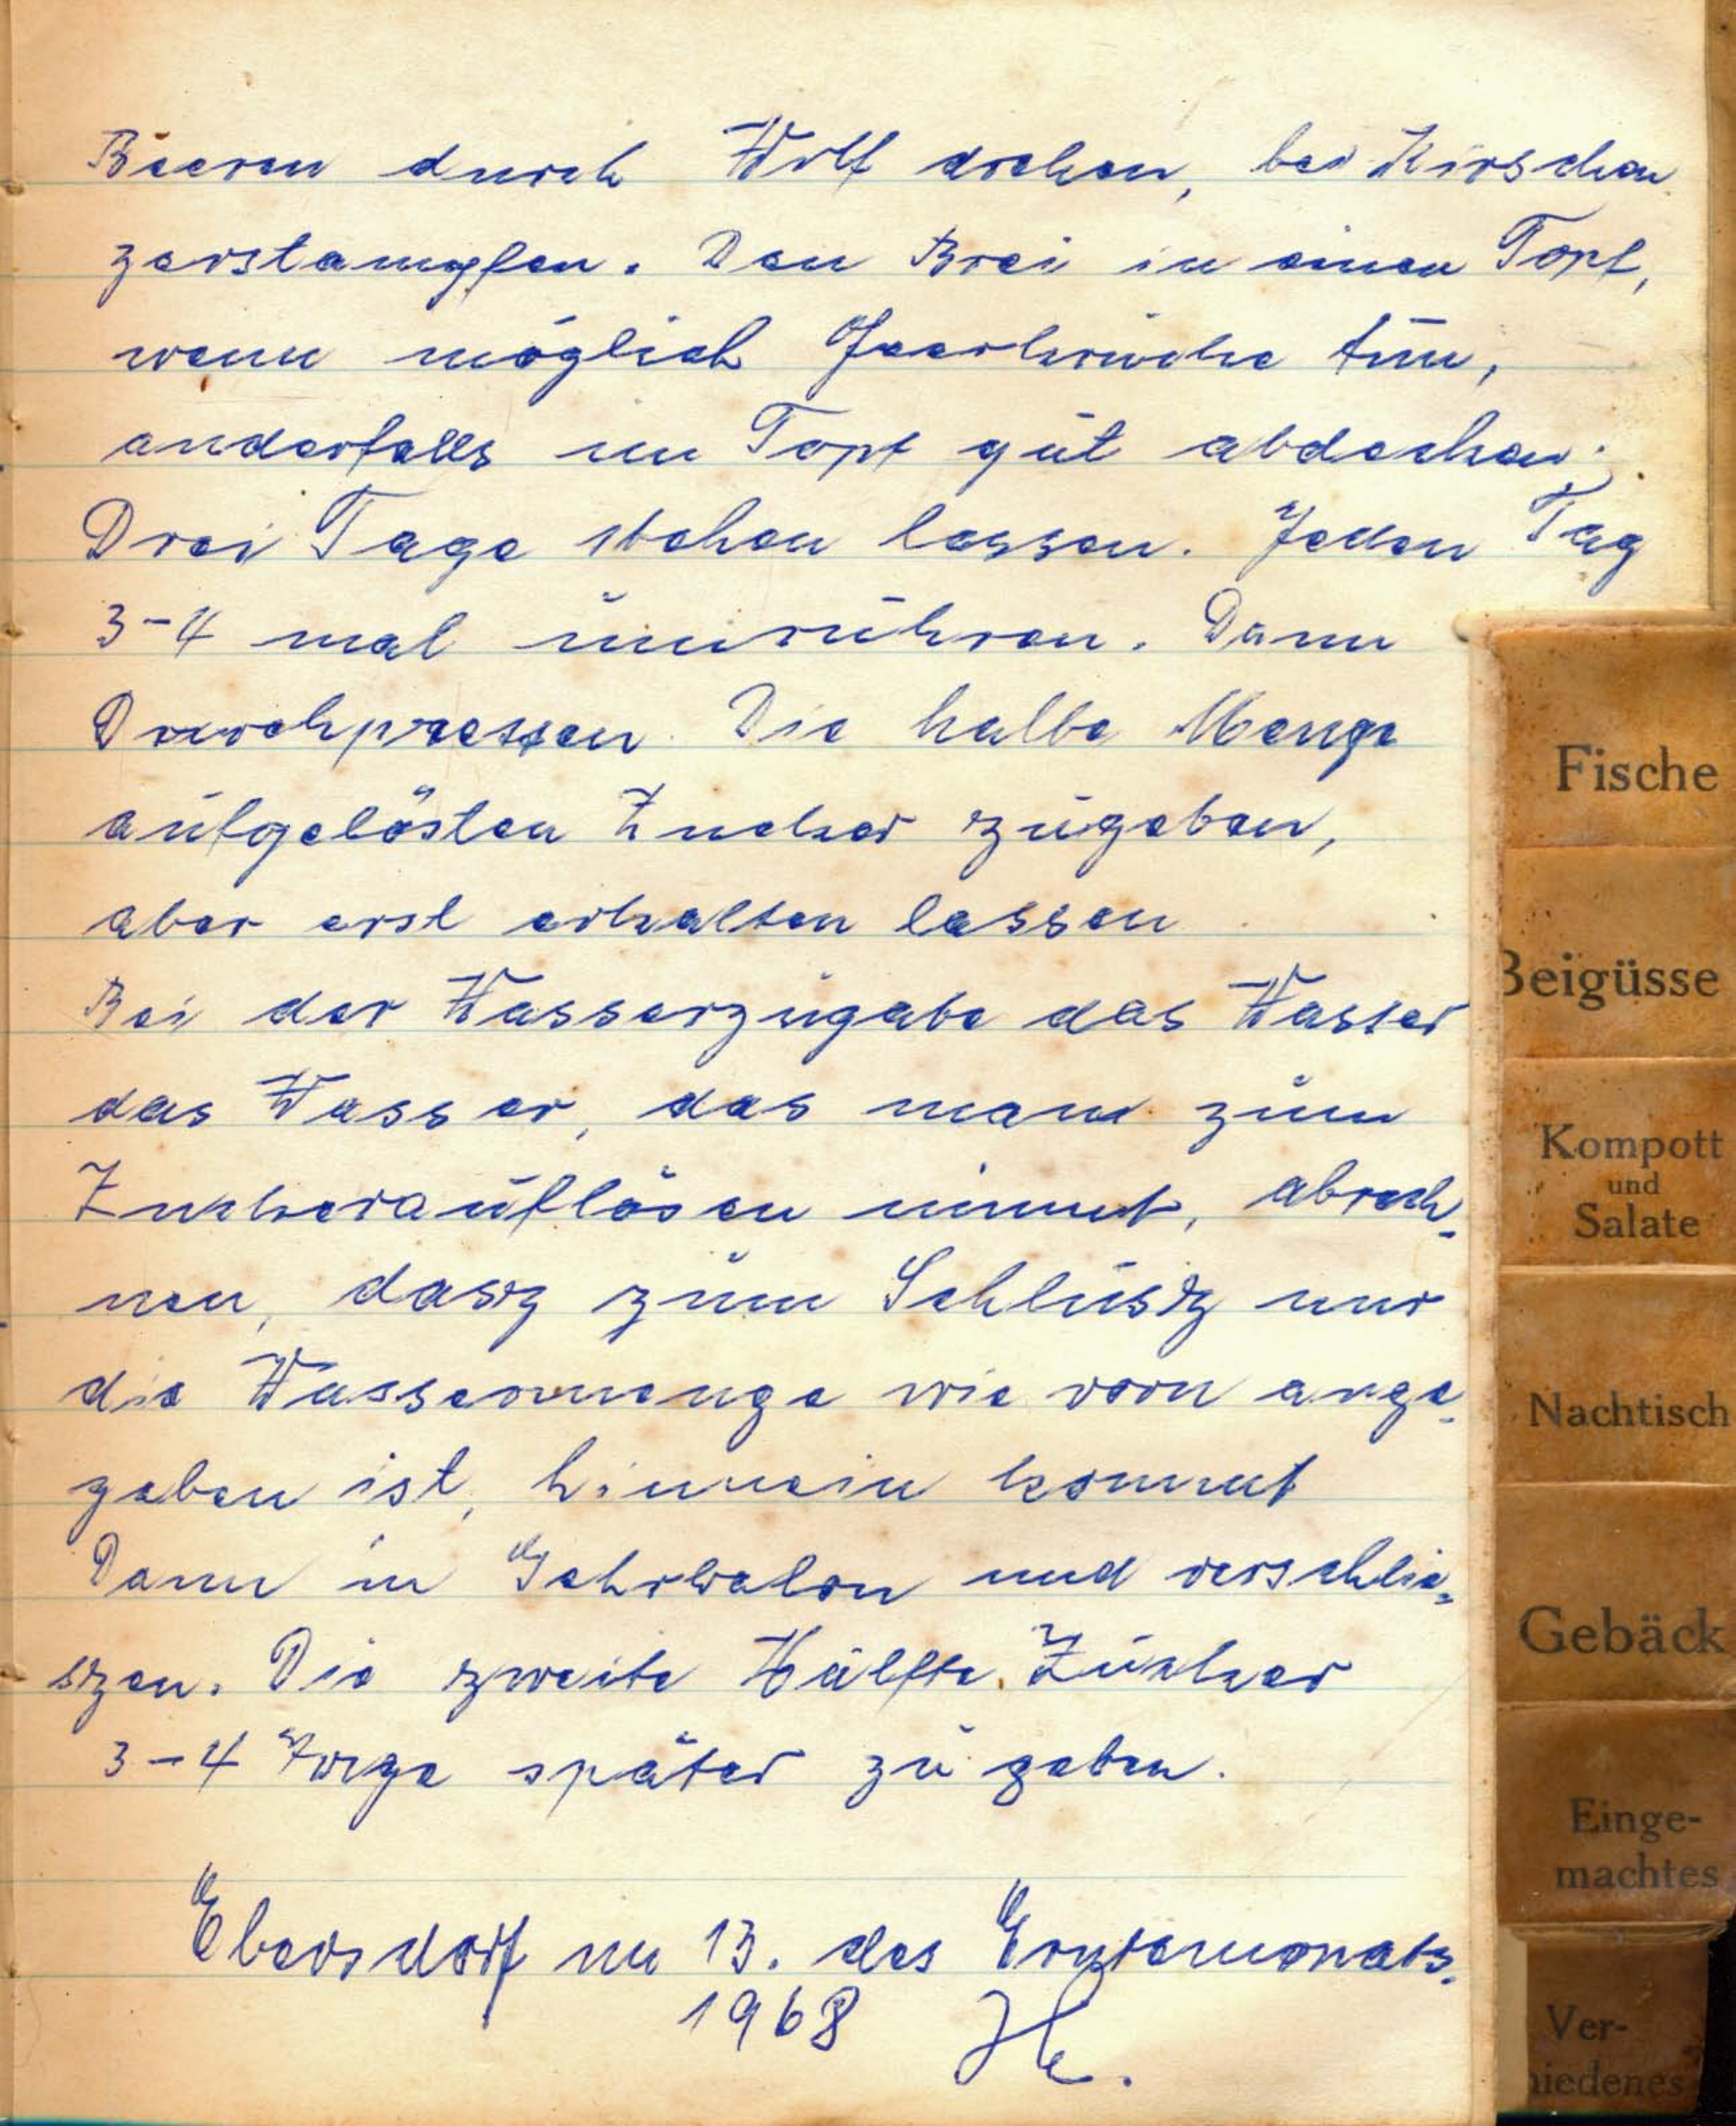 Beeren durch Wolf drehen, bei Kirschen
zerstampfen. Den Brei in einen Topf,
wenn möglich tun,
anderfalls im Topf gut abdecken.
Drei Tage stehen lassen. Jeden Tag
3-4 mal umrühren. Dann
Durchpressen. Die halbe Menge
aufgelösten Zucker zugeben,
aber erst erkalten lassen
Bei der Wasserzugabe das Wasser
das Wasser, das man zum
Zuckerauflösen nimmt, abrech-
nen, dasz zum Schlusz nur
die Wassermenge wie vorn ange-
geben ist, hinnein kommt
Dann in und verschlie-
szen. Die zweite Hälfte Zucker
3-4 Tage später zu geben.
Ebersdorf im 13. des Erntemonats.
1968
Fische
Beigüsse
Kompott
und
Salate
Nachtisch
Gebäck
Einge-
machtes
Ver-
hiedenes